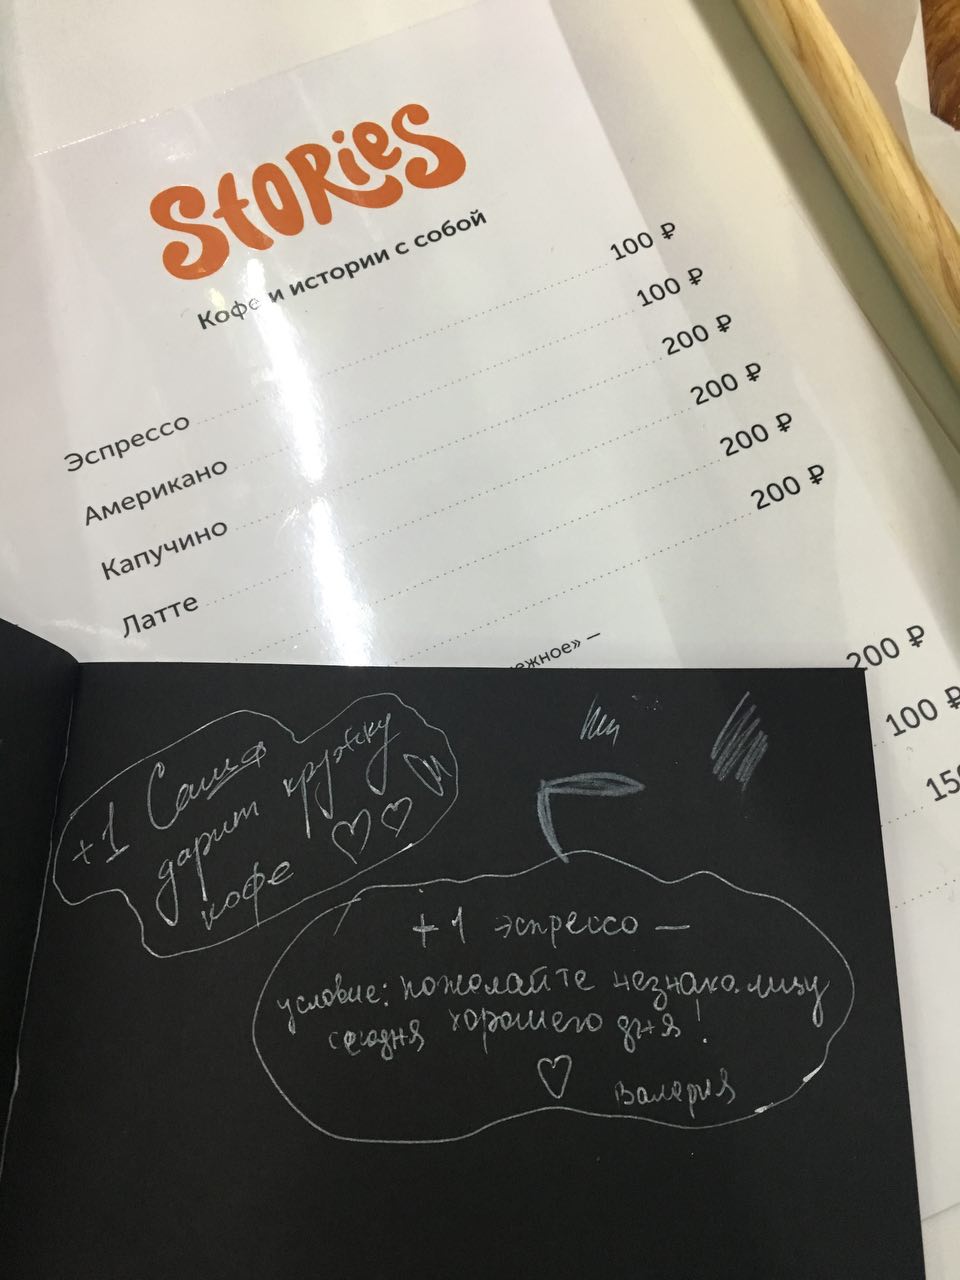 Stories
Кофе и истории с собой
Эспрессо 100 ₽
Американо 100 ₽
Капучино 200 ₽
Латте 200 ₽
200 ₽
200 ₽
ежное» —
200 ₽
100 ₽
150
+1 Саша
дарит кружку
кофе
+1 эспрессо —
условие: пожелайте незнакомцу
сегодня хорошего дня!
Валерия